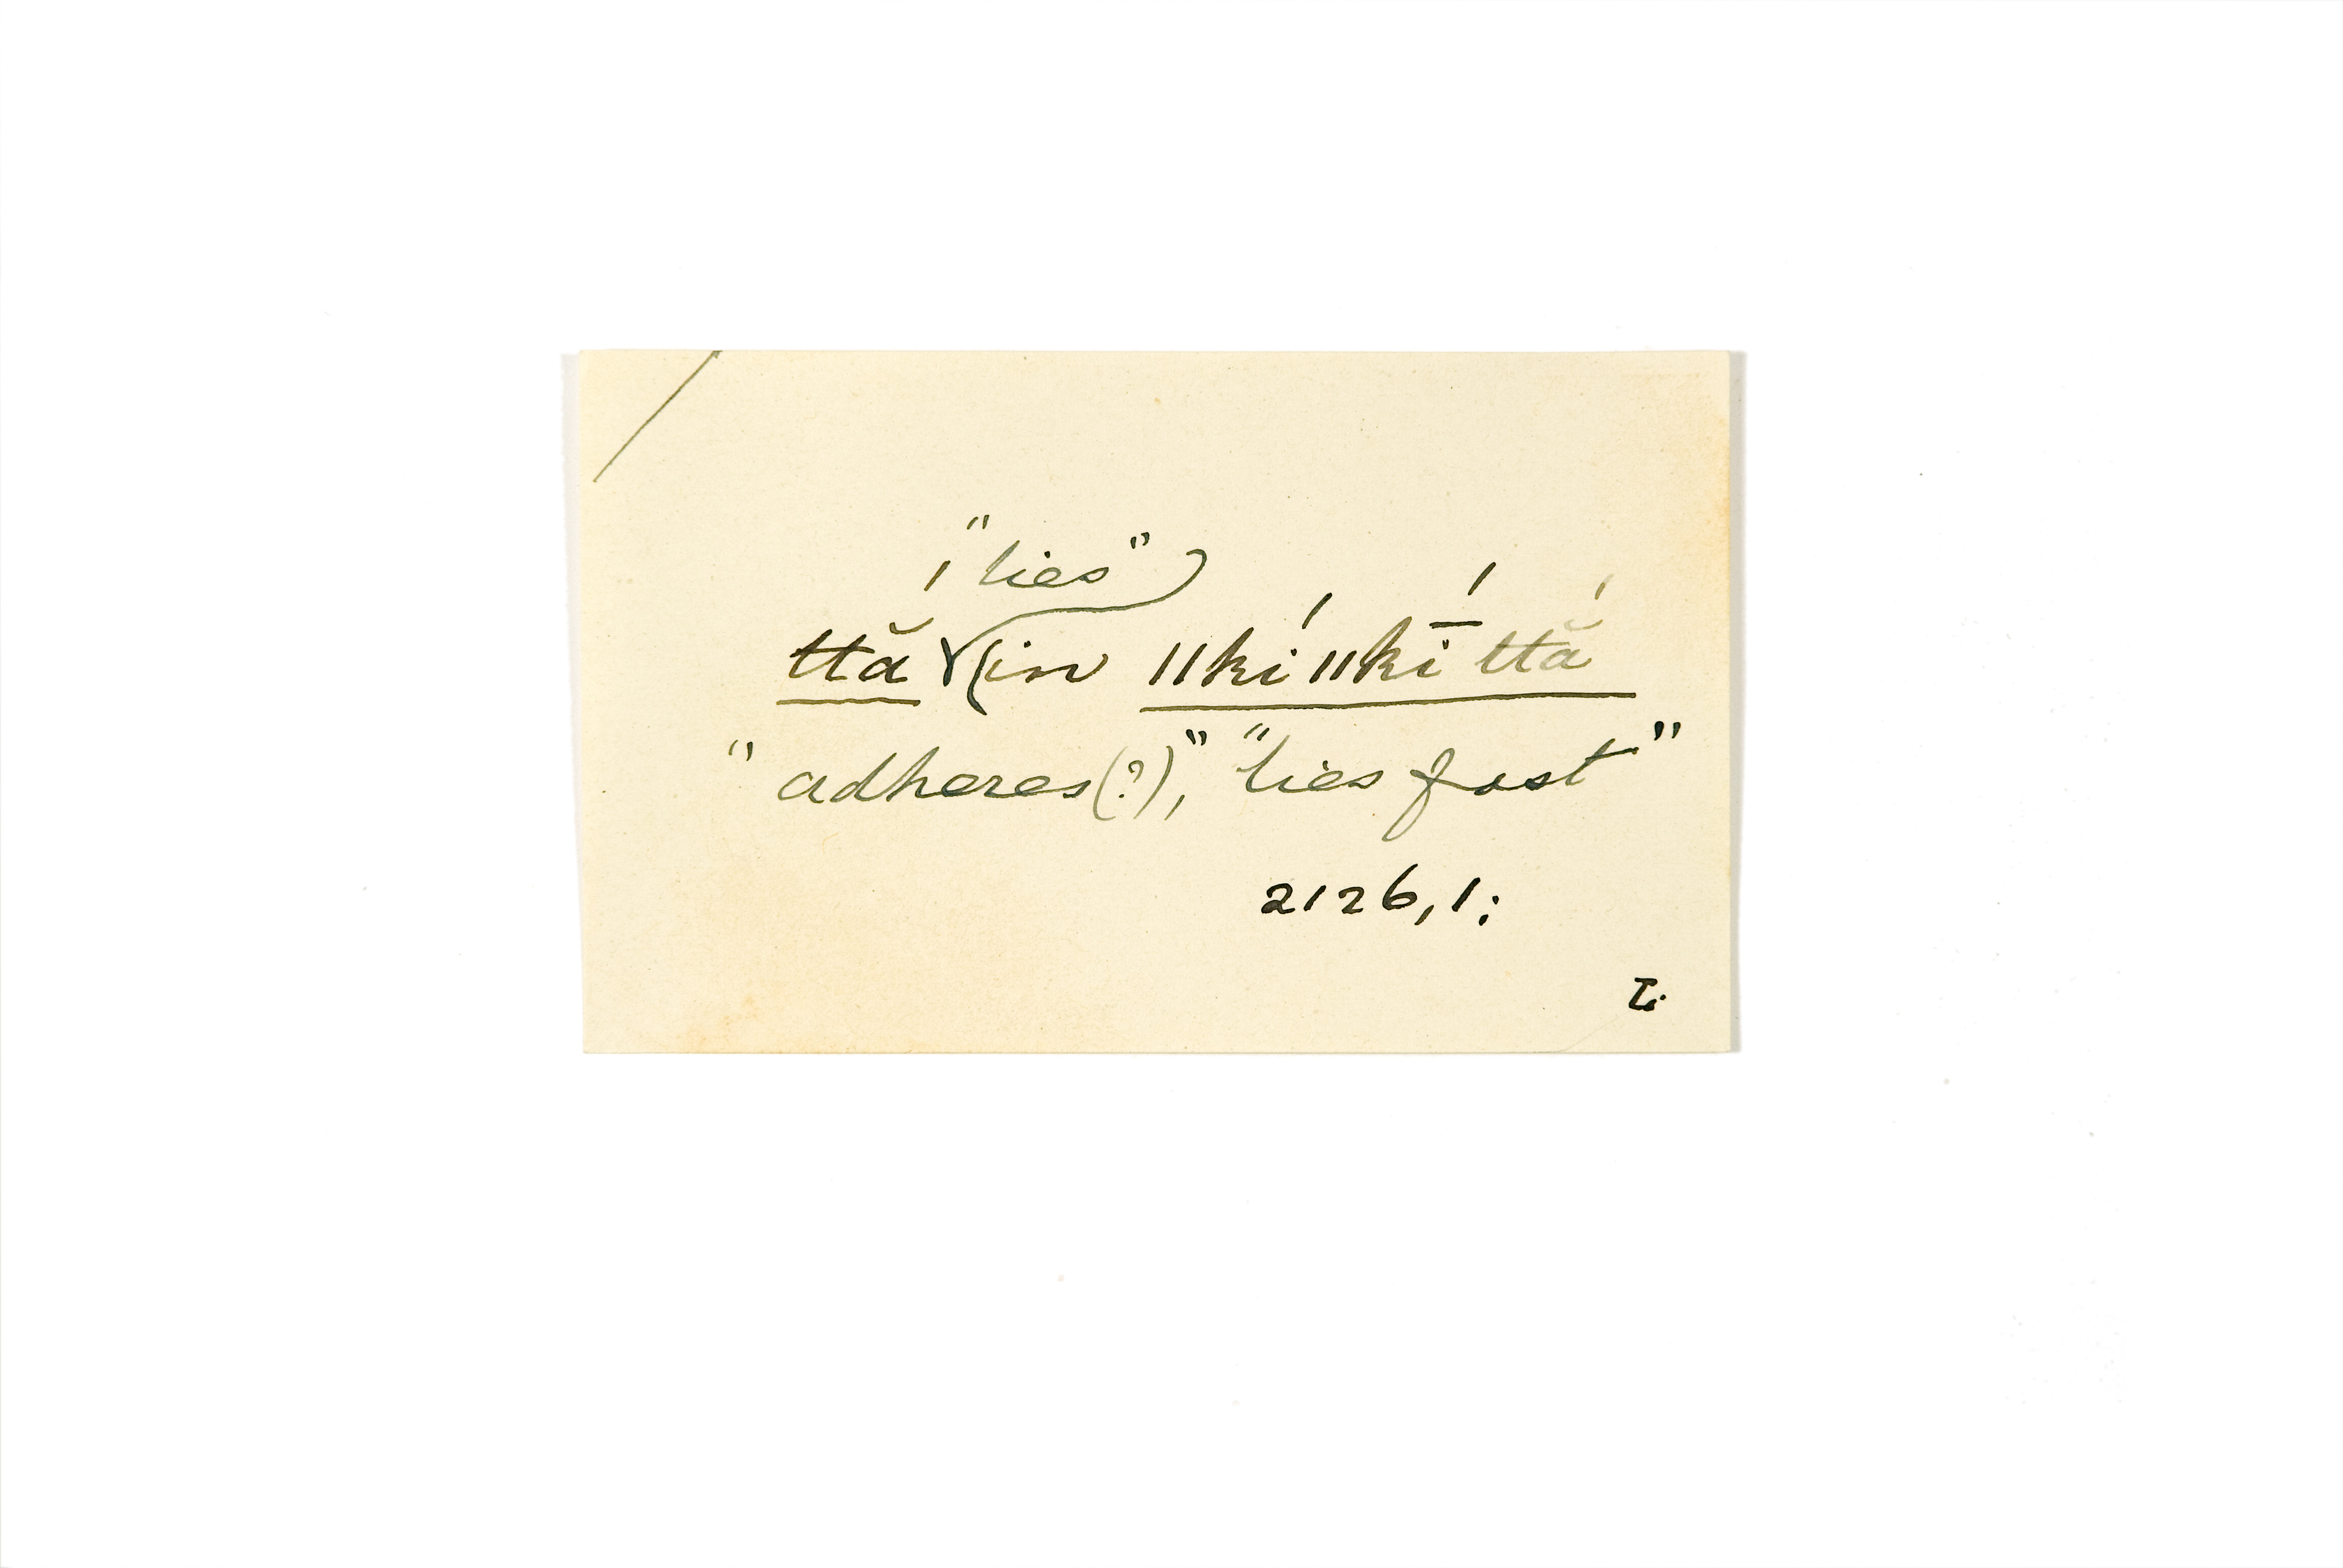 , "lies"
ttắ (in ǁkíǁkī́ttắ
"adheres(?)," "lies fast"
2126, 1;
L.